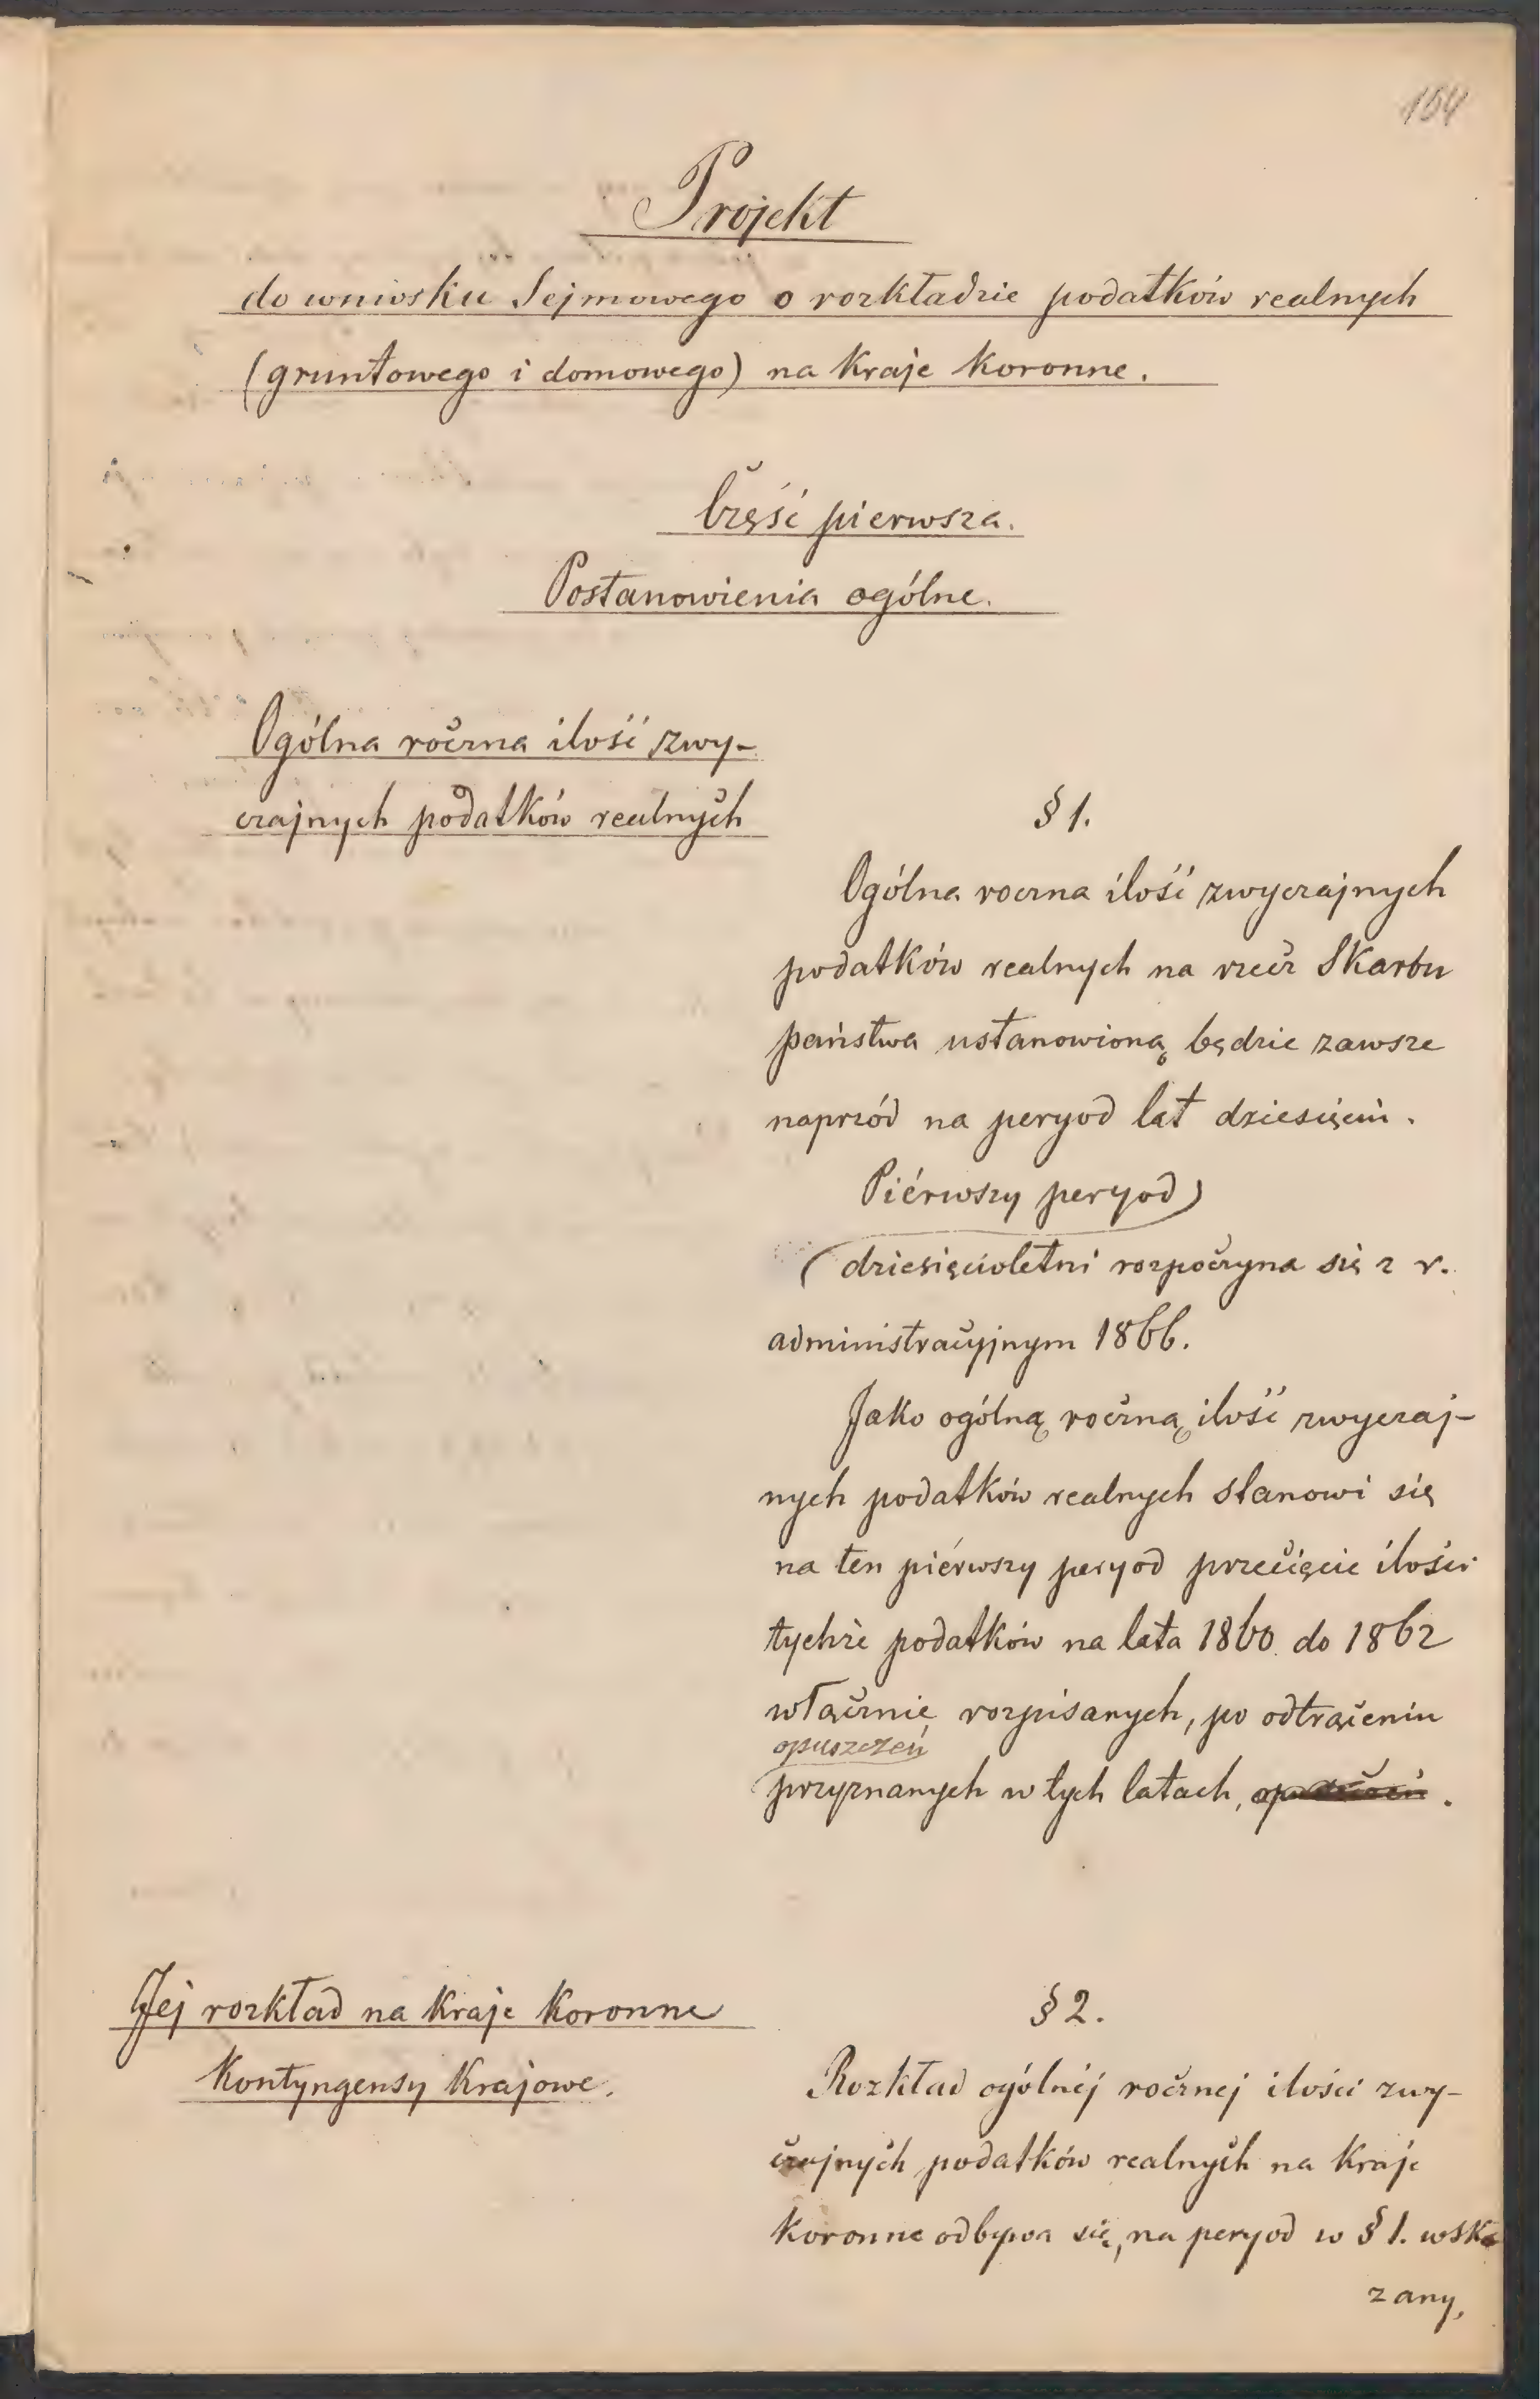 154
Projekt
do wniosku Sejmowego o rozkładzie podatków realnych
(gruntowego i domowego) na Kraje Koronne.
Część pierwsza.
Postanowienia ogólne.
Ogólna roczna ilość zwy-
czajnych podatków realnych
§ 1.
Ogólna roczna ilość zwyczajnych
podatków realnych na rzecz Skarbu
państwa ustanowioną będzie zawsze
naprzód na peryod lat dziesięciu.
Piérwszy peryod
dziesięcioletni rozpoczyna się z r.
administracyjnym 1866.
Jako ogólną roczną ilość zwyczaj-
nych podatków realnych stanowi się
na ten piérwszy peryod przecięcie ilości
tychże podatków na lata 1860 do 1862
włącznie rozpisanych, po odtrąceniu
opuszczeń
przyznanych w tych latach, opuszczeń.
Jej rozkład na Kraje Koronne
Kontyngensy Krajowe.
§ 2.
Rozkład ogólnéj rocznej ilości zwy-
czajnych podatków realnych na Kraje
Koronne odbywa się, na peryod w § 1. wska
zany,